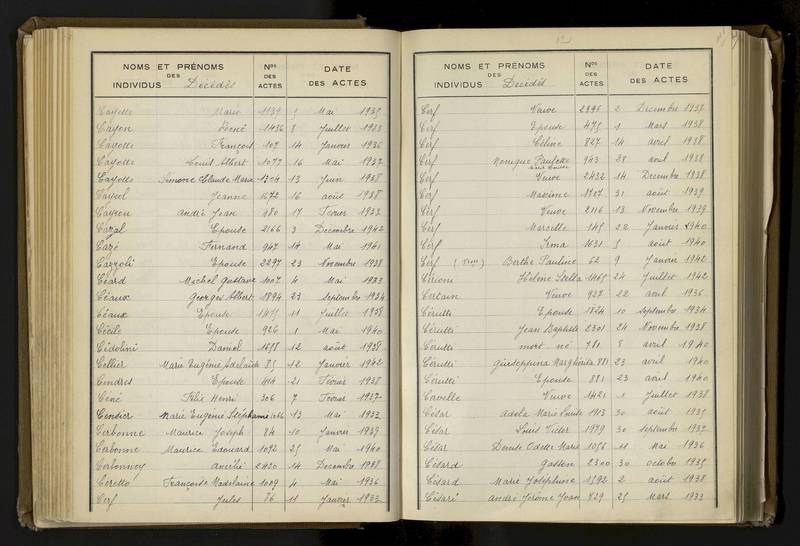 NOMS ET PRÉNOMS DES INDIVIDUS Décédés Nos DES ACTES DATE DES ACTES
Cayotte Marie 1139 5 Mai 1935
Cayon René 1436 8 Juillet 1933
Cayotte François 107 14 Janvier 1936
Cayotte Louis Albert 1077 16 Mai 1937
Cayotte Simone Claude Marie 1304 13 Juin 1938
Cayeul Jeanne 1672 16 août 1938
Cayron André Jean 480 17 Février 1933
Cazal Epouse 2166 3 Decembre 1942
Cazé Fernand 947 14 Mai 1941
Cazzoli Epouse 2297 23 Novembre 1938
Céard Michel Gustave 1007 4 Mai 1933
Céaux Georges Albert 1894 23 septembre 1934
Céaux Epouse 1475 11 Juillet 1938
Cécile Epouse 926 1 Mai 1940
Cédolini Daniel 1658 12 août 1938
Cellier Marie Eugénie Adelaïde 85 12 Janvier 1942
Cendres Epouse 414 21 Février 1938
Céné Félix Henri 306 7 Février 1937
Censier Marie Eugénie Stéphanie 13 Mai 1933
Cerbonne Maurice Joseph 84 10 Janvier 1939
Cerbonne Maurice Edouard 1092 25 Mai 1940
Cerbonnoy Amélie 2420 14 Decembre 1938
Ceretto Françoise Madelaine 1009 4 Mai 1936
Cerf Jules 86 11 Janvier 1933
12
NOMS ET PRÉNOMS DES INDIVIDUS Décédés Nos DES ACTES DATE DES ACTES
Cerf Veuve 2396 2 Decembre 1937
Cerf Epouse 475 1 Mars 1938
Cerf Céline 827 14 avril 1938
Cerf Monique Paulette 943 28 avril 1938
Cerf Veuve 2432 14 Decembre 1938
Cerf Maxime 1707 31 août 1939
Cerf Veuve 2116 13 Novembre 1939
Cerf Marcelle 145 22 Janvier 1940
Cerf Irma 1631 5 août 1940
Cerf Berthe Pauline 62 9 Janvier 1942
Cérioni Hélène Stella 1465 24 Juillet 1942
Certain Veuve 927 22 avril 1936
Cérutti Epouse 1824 10 septembre 1934
Cérutti Jean Baptiste 2301 24 Novembre 1938
Cérutti mort né 781 8 avril 1940
Cérutti Giuseppina Margherita 881 23 avril 1940
Cérutti Epouse 881 23 avril 1940
Cervelle Veuve 1421 1 Juillet 1938
César Adela Marie Louise 1913 30 août 1935
César Louis Victor 1979 30 septembre 1937
César Denise Odette Marie 1056 11 Mai 1936
Césard Gaston 2300 30 octobre 1935
Césard Marie Joséphine 1592 2 août 1938
Césari André Jérôme Jean 829 25 Mars 1933